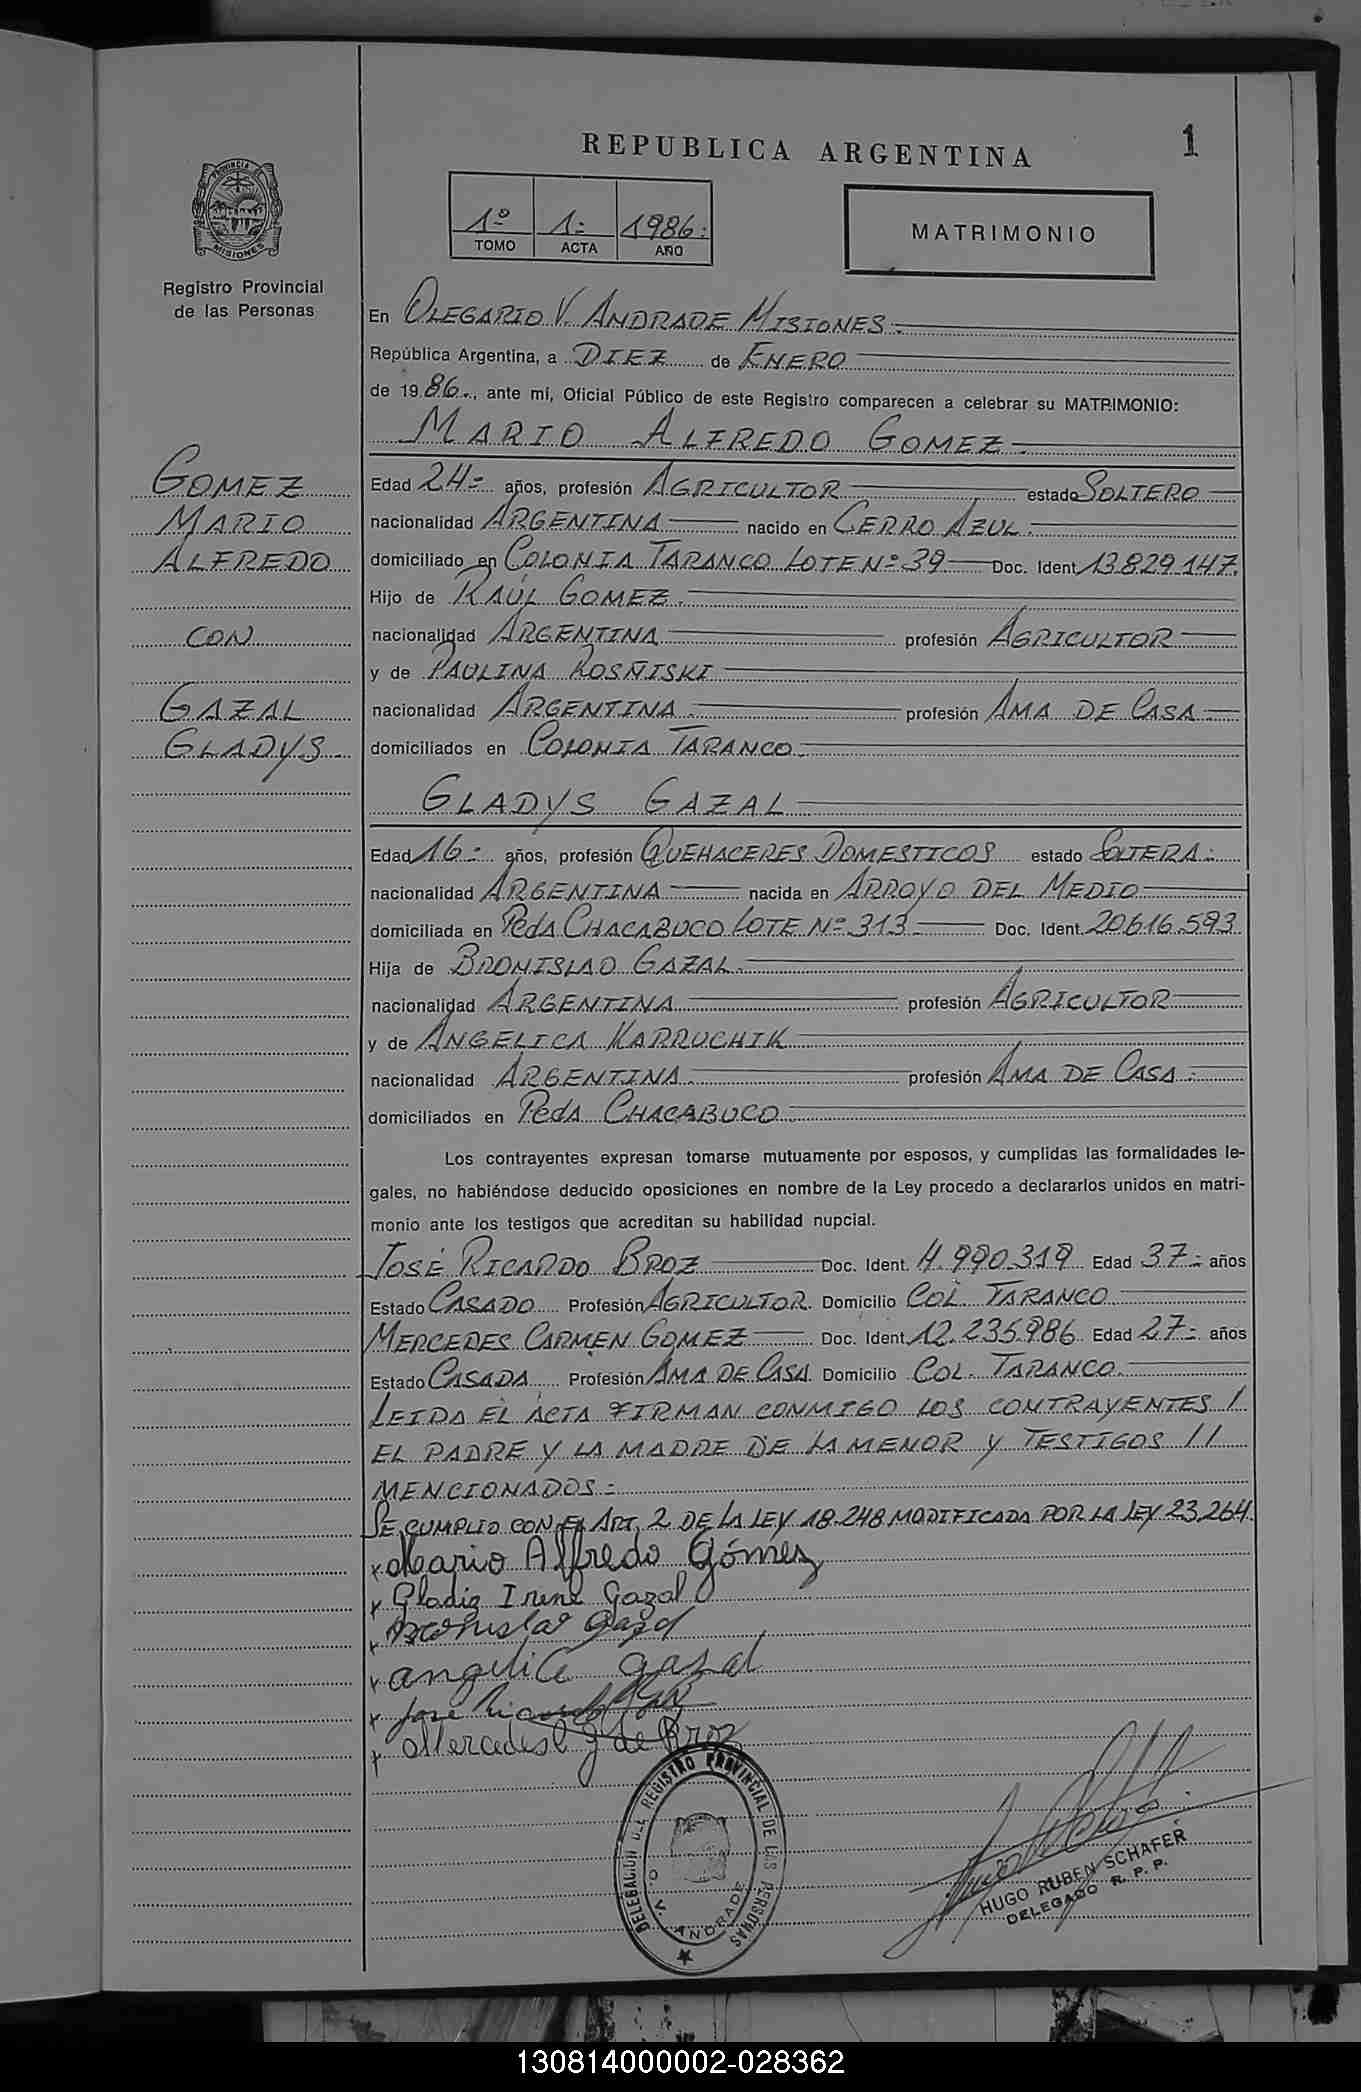 REPUBLICA ARGENTINA
1
PROVINCIA DE MISIONES
Registro Provincial
de las Personas
1º 1- 1986-
TOMO ACTA AÑO
MATRIMONIO
En OLEGARIO V. ANDRADE MISIONES.
República Argentina, a DIEZ de ENERO
de 1986., ante mí, Oficial Público de este Registro comparecen a celebrar su MATRIMONIO:
MARIO ALFREDO GOMEZ
GOMEZ
MARIO
ALFREDO
CON
GAZAL
GLADYS
Edad 24- años, profesión AGRICULTOR estado SOLTERO
nacionalidad ARGENTINA nacido en CERRO AZUL.
domiciliado en COLONIA TARANCO LOTE Nº 39 Doc. Ident. 13.829.147.
Hijo de RAÚL GOMEZ.
nacionalidad ARGENTINA profesión AGRICULTOR
y de PAULINA ROSÑISKI
nacionalidad ARGENTINA. profesión AMA DE CASA
domiciliados en COLONIA TARANCO.
GLADYS GAZAL
Edad 16- años, profesión QUEHACERES DOMESTICOS estado SOLTERA-
nacionalidad ARGENTINA nacida en ARROYO DEL MEDIO
domiciliada en Pcda CHACABUCO LOTE Nº 313 Doc. Ident. 20.616.593
Hija de BRONISLAO GAZAL.
nacionalidad ARGENTINA profesión AGRICULTOR
y de ANGELICA KARRUCHIK
nacionalidad ARGENTINA. profesión AMA DE CASA-
domiciliados en Pcda CHACABUCO
Los contrayentes expresan tomarse mutuamente por esposos, y cumplidas las formalidades le-
gales, no habiéndose deducido oposiciones en nombre de la Ley procedo a declararlos unidos en matri-
monio ante los testigos que acreditan su habilidad nupcial.
JOSÉ RICARDO BROZ Doc. Ident. 4.990.319 Edad 37- años
Estado CASADO Profesión AGRICULTOR. Domicilio COL. TARANCO
MERCEDES CARMEN GOMEZ Doc. Ident. 12.235.986 Edad 27- años
Estado CASADA Profesión AMA DE CASA Domicilio COL. TARANCO.
LEIDA EL ACTA FIRMAN CONMIGO LOS CONTRAYENTES /
EL PADRE Y LA MADRE DE LA MENOR Y TESTIGOS //
MENCIONADOS-
SE CUMPLIO CON EL ART. 2 DE LA LEY 18.248 MODIFICADA POR LA LEY 23.264.
x Mario Alfredo Gómez
x Gladiz Irene Gazal
x Bronislao Gazal
x angelica gazal
x José Ricardo Broz
x Mercedes C g de Broz
DELEGACION DEL REGISTRO PROVINCIAL DE LAS PERSONAS
O. V. ANDRADE
HUGO RUBEN SCHAFER
DELEGADO R. P. P.
130814000002-028362